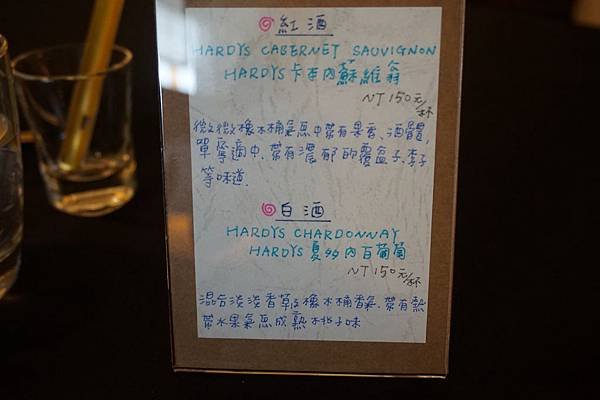 紅酒
HARDYS CABERNET SAUVIGNON
HARDYS 卡本內蘇維翁
NT 150元/杯
微微橡木桶氣息中帶有果香、酒體,
單寧適中.帶有濃郁的覆盆子、李子
等味道.
白酒
HARDYS CHARDONNAY
HARDYS 夏多內白葡萄
NT 150元/杯
混合淡淡香草及橡木桶香氣.帶有熱
帶水果氣息成熟桃子味